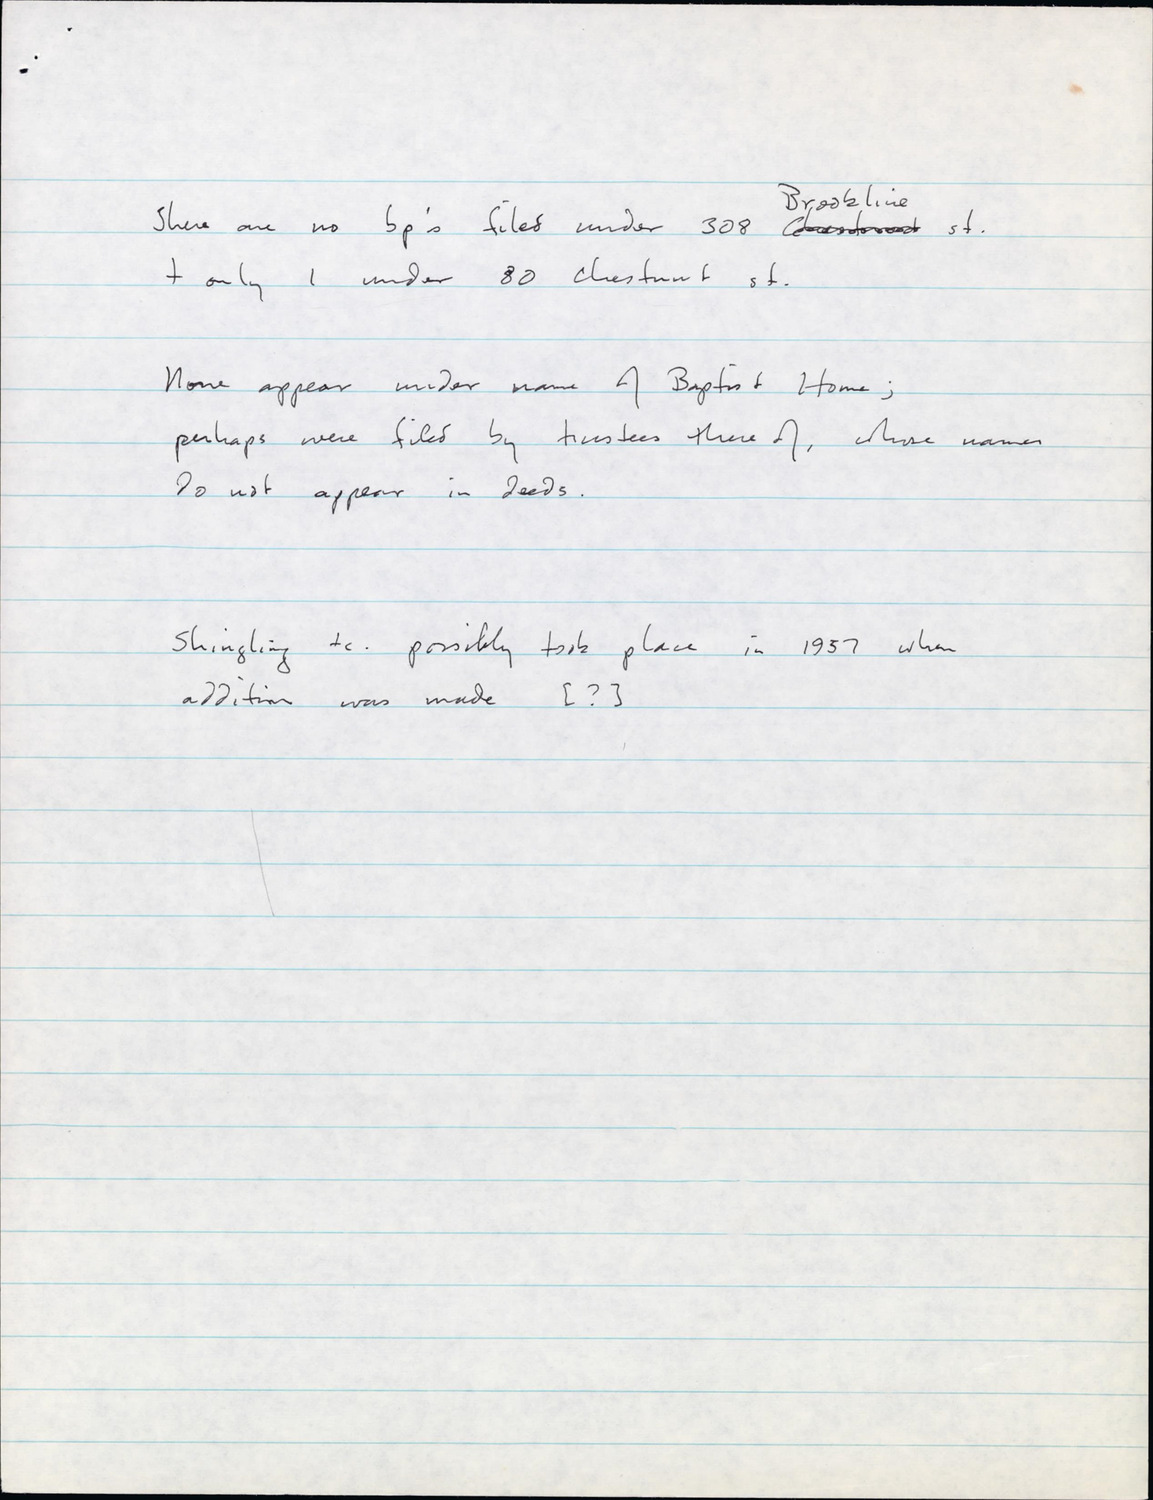 There are no bp's filed under 308 Brookline st.
+ only 1 under 80 Chestnut st.
None appear under name of Baptist Home;
perhaps were filed by trustees there of, whose names
do not appear in deeds.
Shingling tc. possibly took place in 1957 when
addition was made [?]